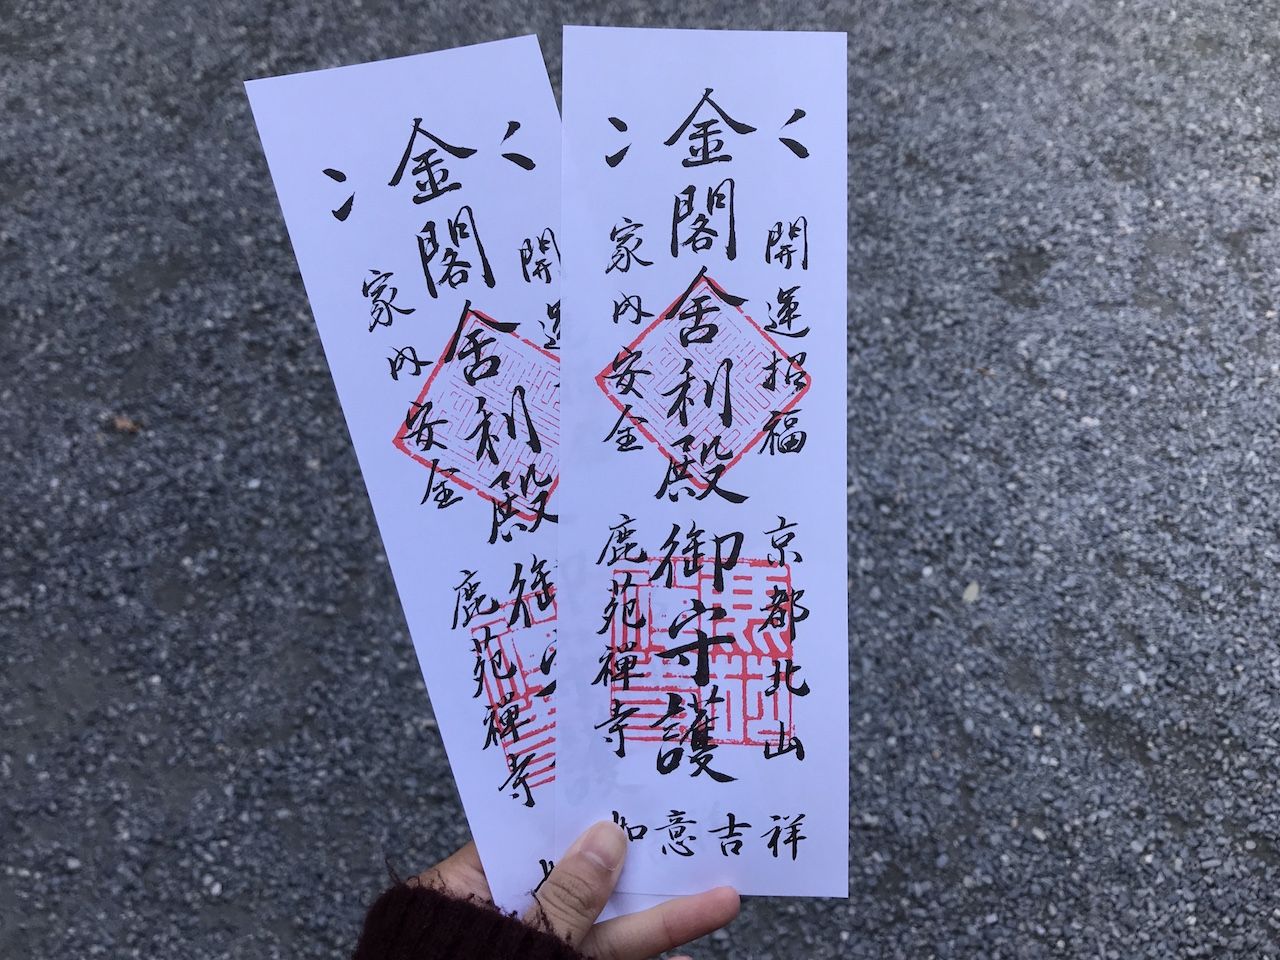 開運招福
京都北山
金閣舎利殿御守護
家内安全
鹿苑禅寺
如意吉祥
開
金閣舎利殿御
家内安全
鹿苑禅寺